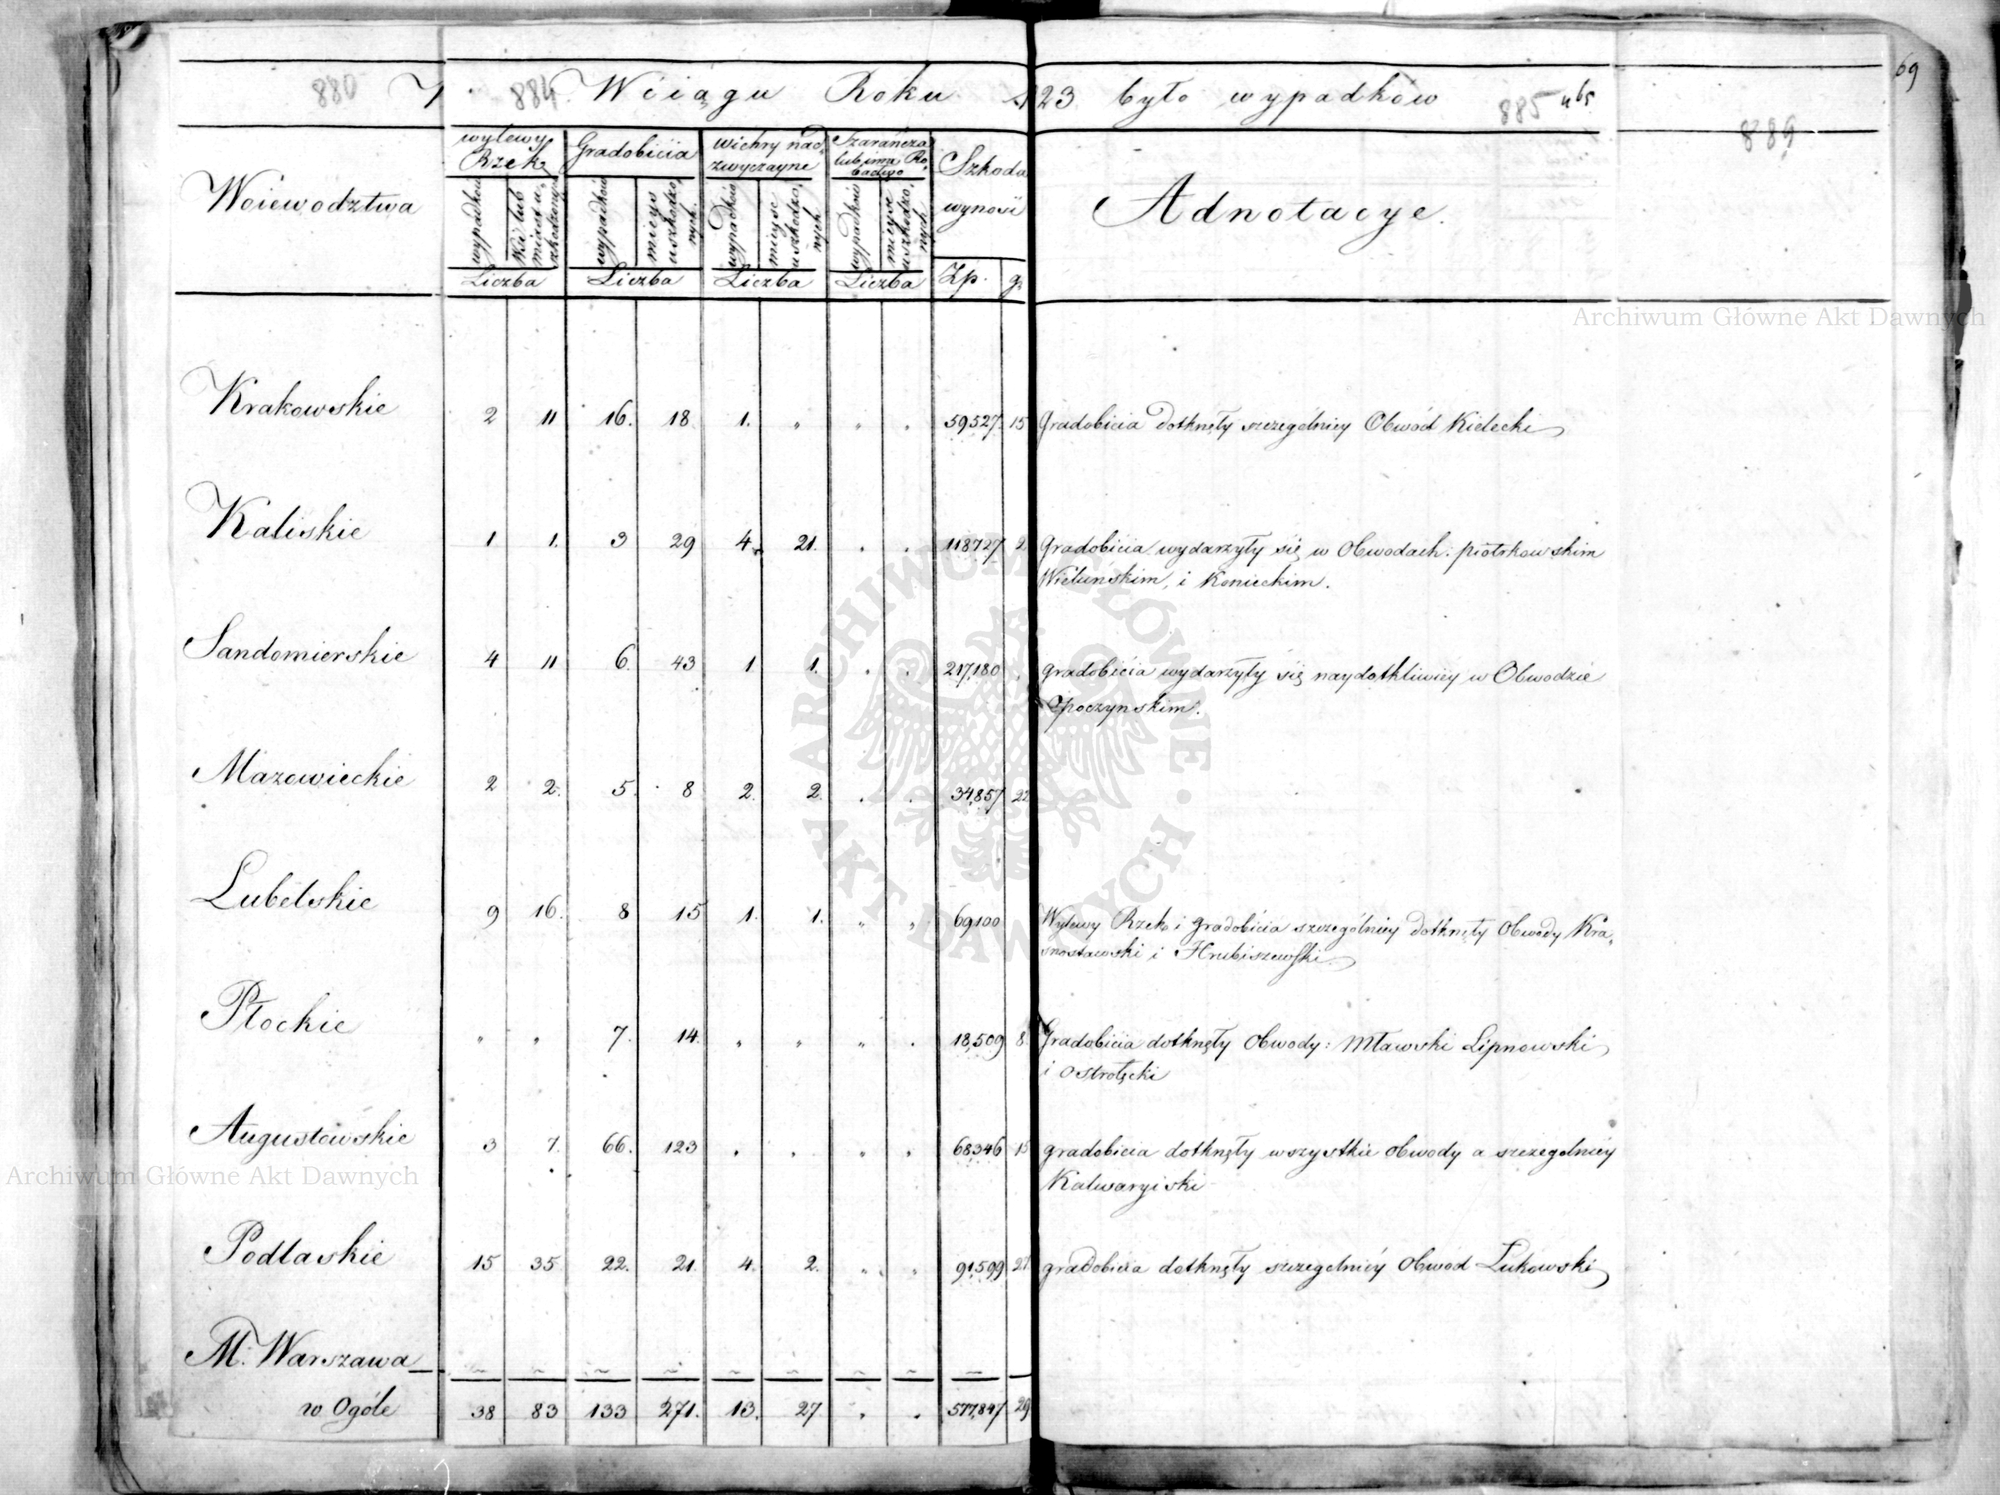 69
880 884 Wciągu Roku 1823 było wypadków 885
889
Woiewodztwa
wylewy Rzek
Gradobicia
wichry nadzwyczayne
Szarańcza lub inne Robactwo
Szkoda wynosi
Adnotacye.
wypadków
wypadków
mieysc uszkodzonych
wypadków
mieysc uszkodzonych
wypadków
mieysc uszkodzonych
Liczba Liczba Liczba Liczba Zp. gr
Krakowskie 2 11 16. 18 1. " " " 59527. 15 Gradobicia dotknęły szczegolniey Obwód Kielecki
Kaliskie 1 1. 3 29 4. 21. " " 118727 2 Gradobicia wydarzyły się w Obwodach. Piotrkowskim
Wieluńskim, i Konieckim.
Sandomierskie 4 11 6. 43 1 1. " " 217,180 gradobicia wydarzyły się naydotkliwiey w Obwodzie
Opoczynskim.
Mazowieckie 2 2. 5. 8 2. 2. " " 34,857 22
Lubelskie 9 16. 8 15 1. 1. " " 69100 Wylewy Rzek i gradobicia szczególniey dotknęły Obwody Kra-
snostawski i Hrubiszewski.
Płockie " " 7. 14. " " " " 18,509 8 Gradobicia dotknęły Obwody: Mławski Lipnowski
i Ostrołęcki
Augustowskie 3 7. 66. 123 " " " " 68346 15 gradobicia dotknęły wszystkie obwody a szczegolniey
Kalwaryiski
Podlaskie 15 35. 22. 21. 4. 2. " " 91,599 27 gradobicia dotknęły szczegolniey Obwod Łukowski
M. Warszawa
w Ogóle 38 83 133 271. 13. 27 " " 577,847 29
Archiwum Główne Akt Dawnych
Archiwum Główne Akt Dawnych
ARCHIWUM GŁÓWNE AKT DAWNYCH